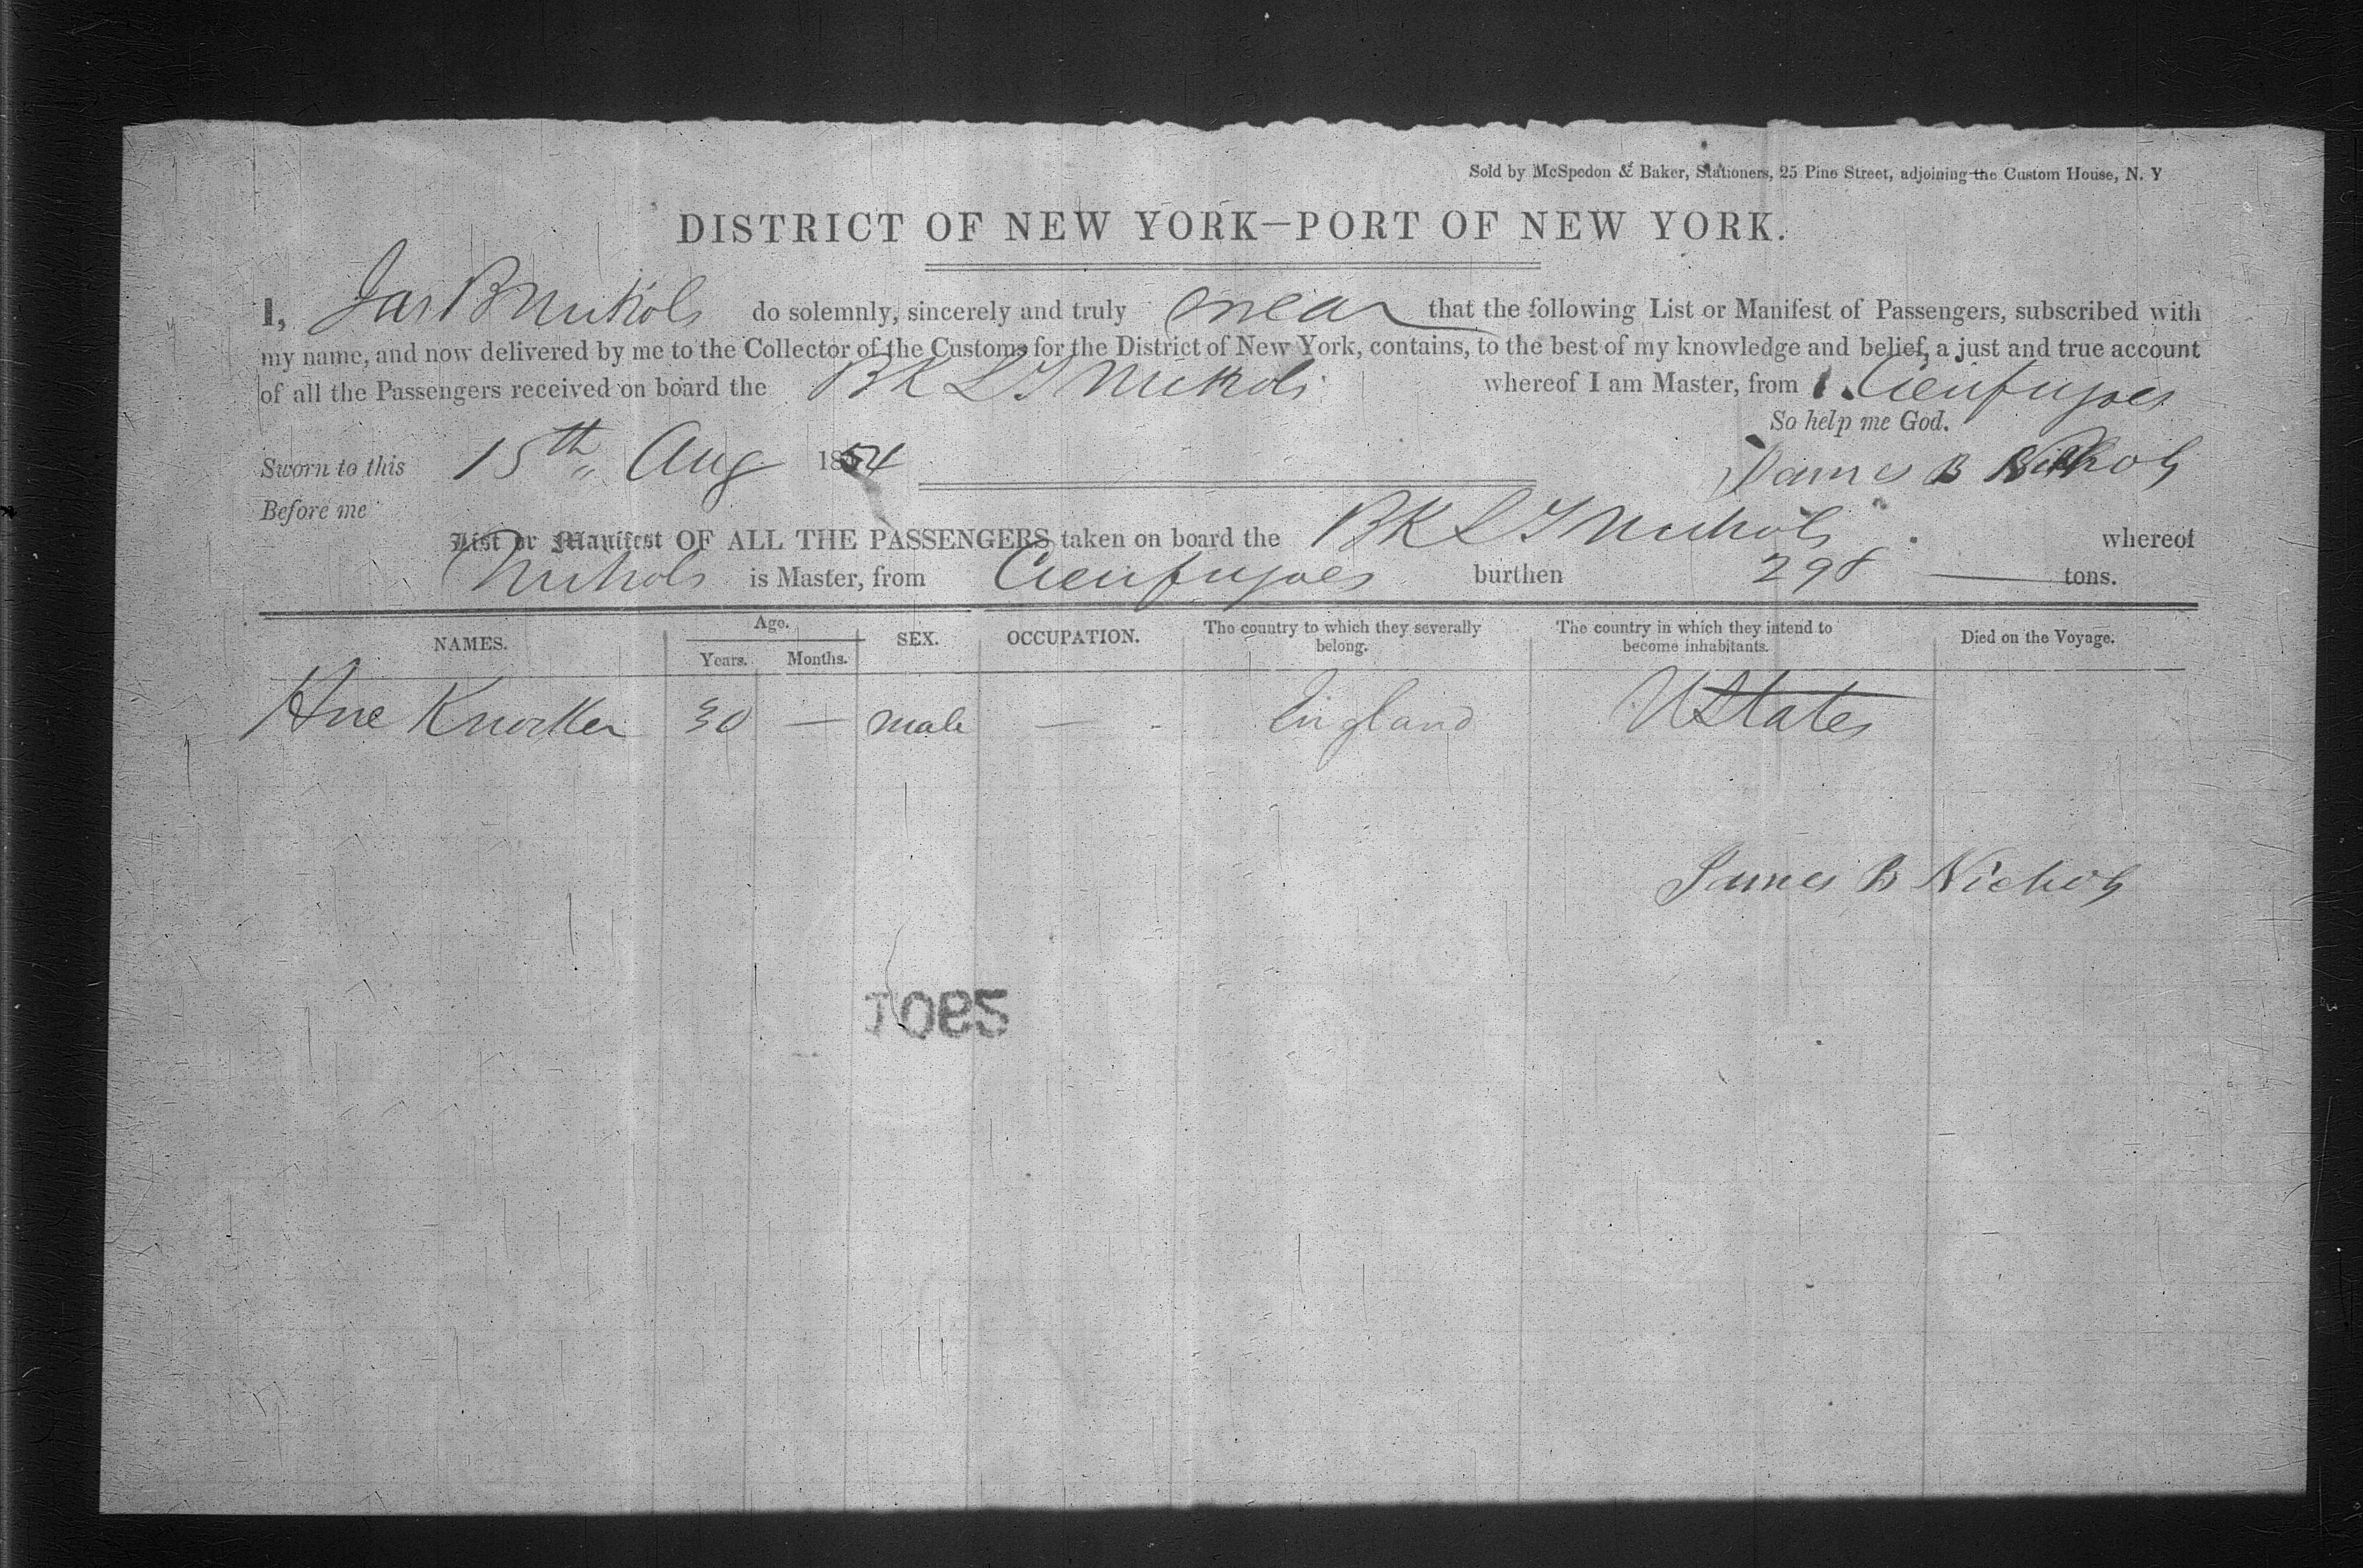 Sold by McSpedon & Baker, Stationers, 25 Pine Street, adjoining the Custom House, N. Y
DISTRICT OF NEW YORK—PORT OF NEW YORK.
I, Jas B Nichols do solemnly, sincerely and truly swear that the following List or Manifest of Passengers, subscribed with
my name, and now delivered by me to the Collector of the Customs for the District of New York, contains, to the best of my knowledge and belief, a just and true account
of all the Passengers received on board the BK L T Nichols whereof I am Master, from Cienfugoes
So help me God.
Sworn to this 15th Aug 1854 James B Nichols
Before me
List or Manifest OF ALL THE PASSENGERS taken on board the BK L T Nichols whereof
Nichols is Master, from Cienfugoes burthen 298 tons.
NAMES. Age. Years. Months. SEX. OCCUPATION. The country to which they severally belong. The country in which they intend to become inhabitants. Died on the Voyage.
30 — male — England UStates
James B Nichols